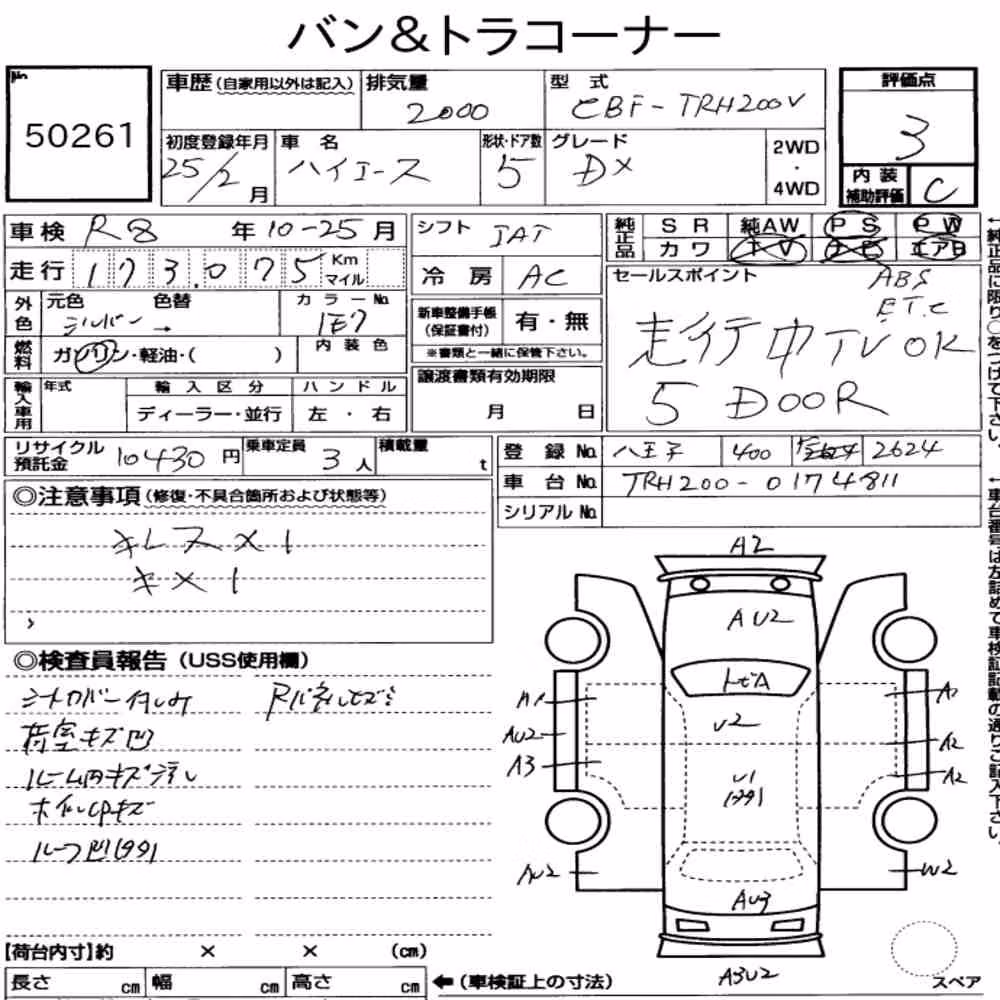 バン&トラコーナー
No. 50261
車歴 (自家用以外は記入) 排気量 2000 型式 CBF-TRH200V 評価点 3
初度登録年月 25/2月 車名 ハイエース 形状・ドア数 5 グレード DX 2WD・4WD 内装補助評価 C
車検 R8年10-25月 シフト IAT 純正品 SR 純AW PS PW
カワ TV エアB
走行 173.075 Km マイル 冷房 AC セールスポイント ABS
E.T.C
外色 元色 シルバー 色替 → カラーNo. 1E7 新車整備手帳(保証書付) 有・無
※書類と一緒に保管下さい。
走行中TV OK
燃料 ガソリン・軽油・( ) 内装色
輸入車用 年式 輸入区分 ハンドル 譲渡書類有効期限
5 DOOR
ディーラー・並行 左・右 月 日
リサイクル預託金 10430円 乗車定員 3人 積載量 t 登録No. 八王子 400 2624
車台No. TRH200-0174811
シリアルNo.
◎注意事項 (修復・不具合箇所および状態等)
キレス×1
キ×1
◎検査員報告 (USS使用欄)
シートカバー付しみ
荷室キズ凹
ルーム内キズ汚し
ルーフ凹
A2
AU2
トビA
U2
U1
A1
AU2
A3
AU2
A1
A2
A2
W2
AU3
A3U2
【荷台内寸】約 × × (cm)
長さ cm 幅 cm 高さ cm ←(車検証上の寸法) スペア
←純正品に限り○をつけて下さい。
←車台番号は左詰めで車検証記載の通りご記入下さい。